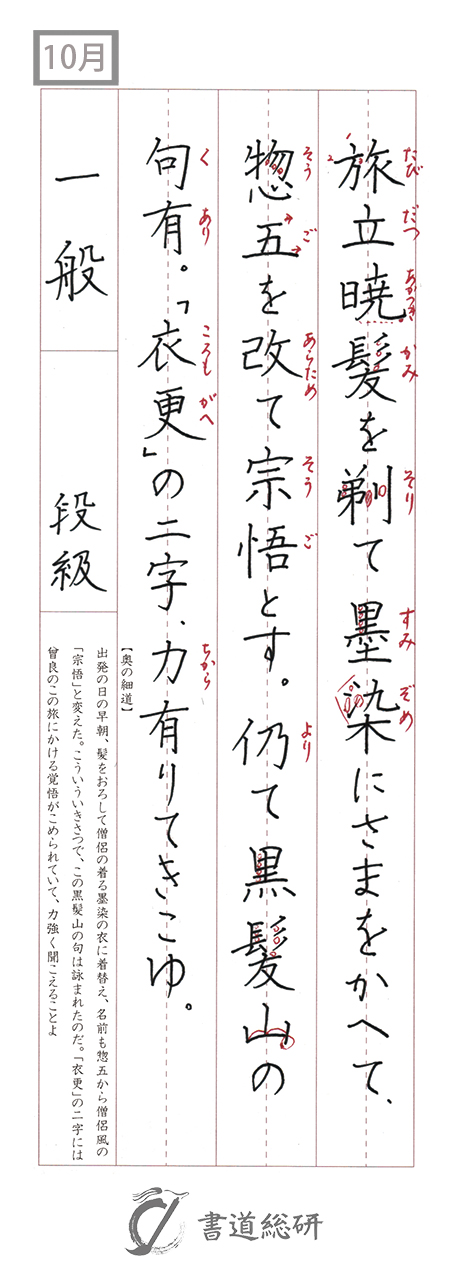 10月
旅立暁髪を剃て墨染にさまをかへて、
たび だつ あかつき かみ そり すみ ぞめ
惣五を改て宗悟とす。仍て黒髪山の
そう ご あらため そう ご より
句有。「衣更」の二字、力有りてきこゆ。
く あり ころも がへ ちから
一般
段級
【奥の細道】
出発の日の早朝、髪をおろして僧侶の着る墨染の衣に着替え、名前も惣五から僧侶風の
「宗悟」と変えた。こういういきさつで、この黒髪山の句は詠まれたのだ。「衣更」の二字には
曾良のこの旅にかける覚悟がこめられていて、力強く聞こえることよ
書道総研